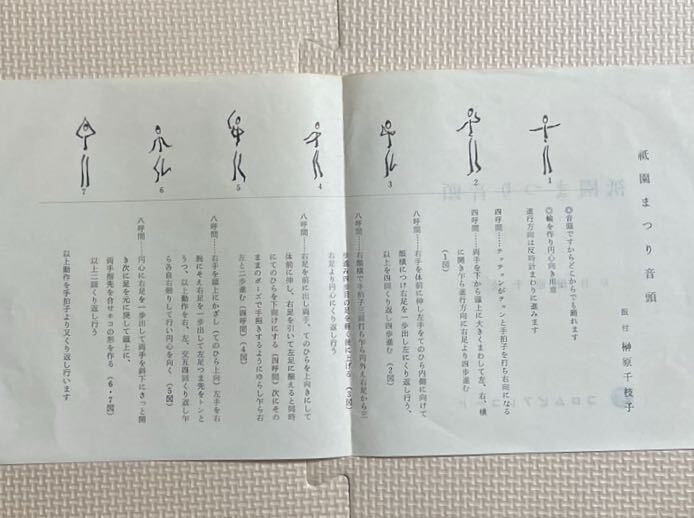 祇園まつり音頭
振付 榊原千枝子
◎音頭ですからどこからでも踊れます
◎輪を作り円心向き用意
進行方向は反時計まわりに進みます
四呼間……チョチョンがチョンと手拍子を打ち右向になる
四呼間……両手を下から頭上に大きくまわして左、右、横
に開き乍ら進行方向に右足より四歩進む
(1図)
八呼間……右手を体前に伸し左手をてのひら内側に向けて
顔横につけ右足を一歩出し左にくり返し行う、
以上を四回くり返し四歩進む (2図)
八呼間……右顔横で手拍子三回打ち乍ら円外え右足から三
歩進み四歩目の足を軽く後に上げる (3図)
右足より円心にくり返し行う
八呼間……右足を前に出し両手、てのひらを上向きにして
体前に伸し、右足を引いて左足に揃えると同時
にてのひらを下向けにする(四呼間)次にその
ままのポーズで手招きするようにゆらし乍ら右
左と二歩進む(四呼間)(4図)
八呼間……右手を頭上にかざし(てのひら上向)左手を右
腕にそえ右足を一歩出して左足つま先をトンと
うつ、以上動作を右、左、交互四回くり返し乍
ら各自右廻りして行い円心を向く (5図)
八呼間……円心に右足を一歩出して両手を斜下にさっと開
き次に足を元に戻して頭上に、
両手指先を合せホコの形を作る (6・7図)
以上二回くり返し行う
以上動作を手拍子より又くり返し行います
1
2
3
4
5
6
7